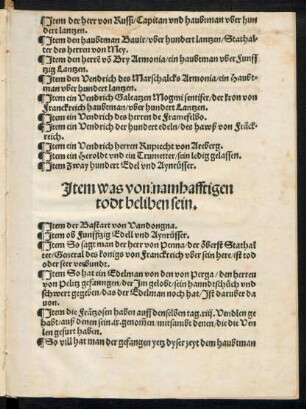 ¶Item der herr von Russi/Capitan vnd haubtman vber hun
dert lantzen.
¶Item den haubtman Bauit/vber hundert lantzen/Stathal-
ter des herren von Mey.
¶Item den herrē vō Bry Armonia/ein haubtman vber Funff
tzig Lantzen.
¶Item den Vendrich des Marschalcks Armonia/ein Haubt-
man vber hundert lantzen.
¶Item ein Vendrich Galeatzen Mogmi sentiser/der kron von
Franckreich haubtman/vber hundert Lantzen.
¶Item ein Vendrich des herren de Frameselbo.
¶Item ein Vendrich der hundert edeln/des hawß von Frāck-
reich.
¶Item ein Vendrich herren Ruprecht von Areberg.
¶Item ein Heroldt vnd ein Trumetter/sein ledig gelassen.
¶Item Zway hundert Edel vnd Aynrüsser.
Item was von namhafftigen
todt beliben sein.
¶Item der Bastart von Vandongna.
¶Item ob Funfftzig Edell vnd Aynrüsser.
¶Item So sagt man der herr von Penna/der öberst Stathal
ter/General des konigs von Franckreich vber sein here/ist tod
oder seer verwundt.
¶Item So hat ein Edelman von den von Perga/den herren
von Pelitz gefanngen/der Im gelobt/sein hanndtschůch vnd
schwert gegeben/das der Edelman noch hat/Ist darüber da
uon.
¶Item die Frātzosen haben auff denselben tag.xiij.Venlen ge
habt/auß denen sein .ix. genommen/mitsambt denen/die die Ven
len gefurt haben.
¶So vill hat man der gefangen yetz dyser zeyt dem haubtman